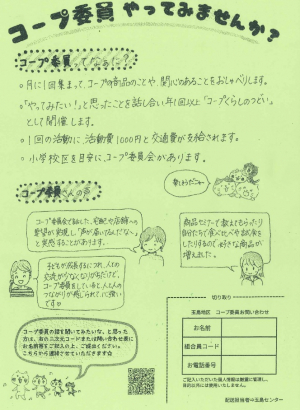 コープ委員やってみませんか？
コープ委員ってなあに？
○月に1回集まって、コープの商品のことや、関心のあることをおしゃべりします。
○「やってみたい！」と思ったことを話し合い、年1回以上「コープくらしのつどい」
として開催します。
○1回の活動に、活動費1000円と交通費が支給されます。
○小学校区を目安に、コープ委員会があります。
コープ委員さんの声
コープ委員会で話したり、宅配や店舗への
要望が実現し「声が届いてるんだな〜」
と実感することがあります。
商品セミナーで教えてもらったり
自分たちで食べ比べや試食を
したりするので、好きな商品が
増えました。
子どもが成長するにつれ、人との
交流が少なくなりがちだけど、
コープ委員をしていると人との
つながりが感じられて心強い
です
コープ委員の話を聞いてみたいな、と思った
方は、右の二次元コードまたは問い合わせ票に
お名前等をご記入の上、ご提出ください。
こちらから連絡させていただきます☆
切り取り
玉島地区　コープ委員お問い合わせ
お名前
組合員コード
お電話番号
ご記入いただいた個人情報は厳重に管理し、
目的以外には使用いたしません。
配送担当者⇒玉島センター